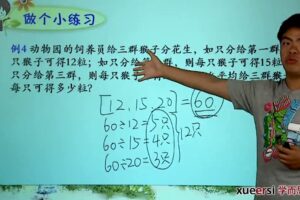 做个小练习
例4 动物园的饲养员给三群猴子分花生，如只分给第一群
只猴子可得12粒；如只分给第二群，则每只猴子可得15粒
只分给第三群，则每只猴子
平均给三群
每只可得多少粒？
[12,15,20]=60
60÷12=5只
60÷15=4只
60÷20=3只
12只
xueersi 学而